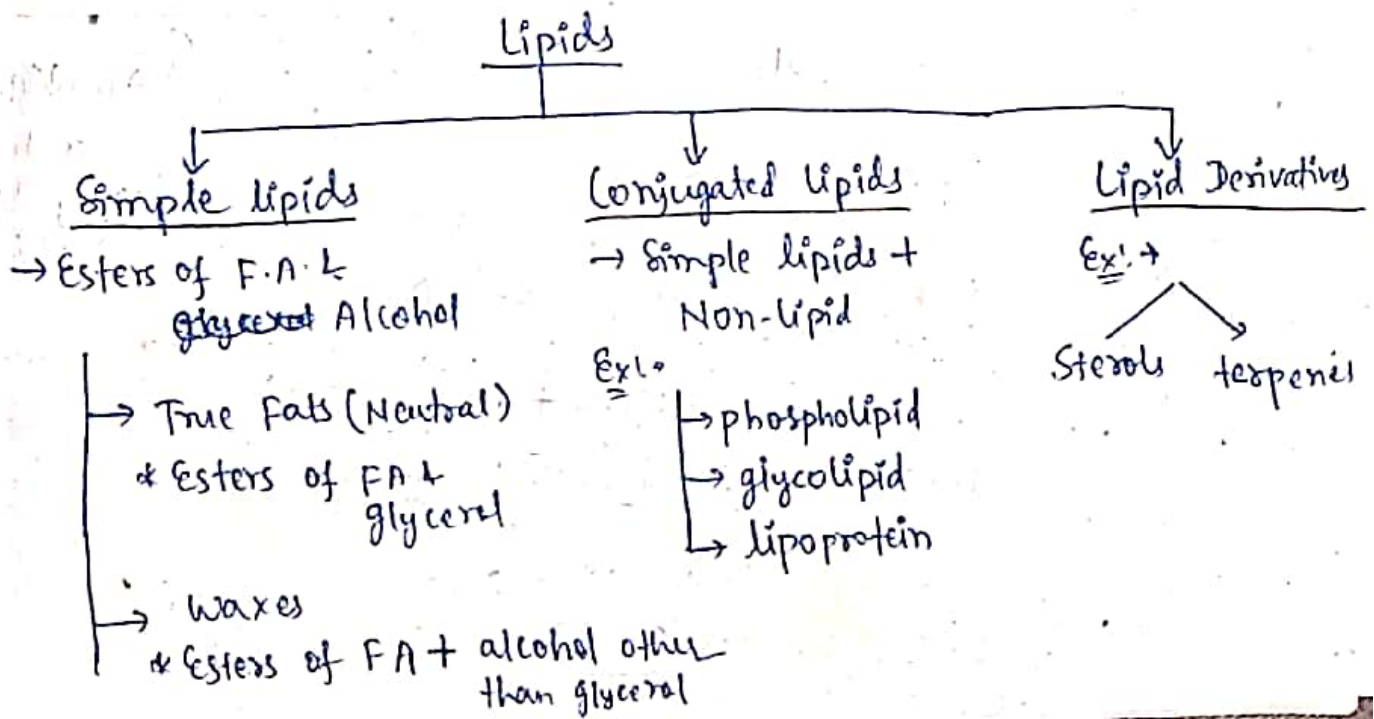 Lipids
Simple lipids
→ Esters of F.A. &
glycerol Alcohol
→ True Fats (Neutral)
* Esters of FA &
glycerol
→ Waxes
* Esters of FA + alcohol other
than glycerol
Conjugated lipids
→ Simple lipids +
Non-lipid
Ex:-
→ phospholipid
→ glycolipid
→ lipoprotein
Lipid Derivatives
Ex:→
Sterols terpenes